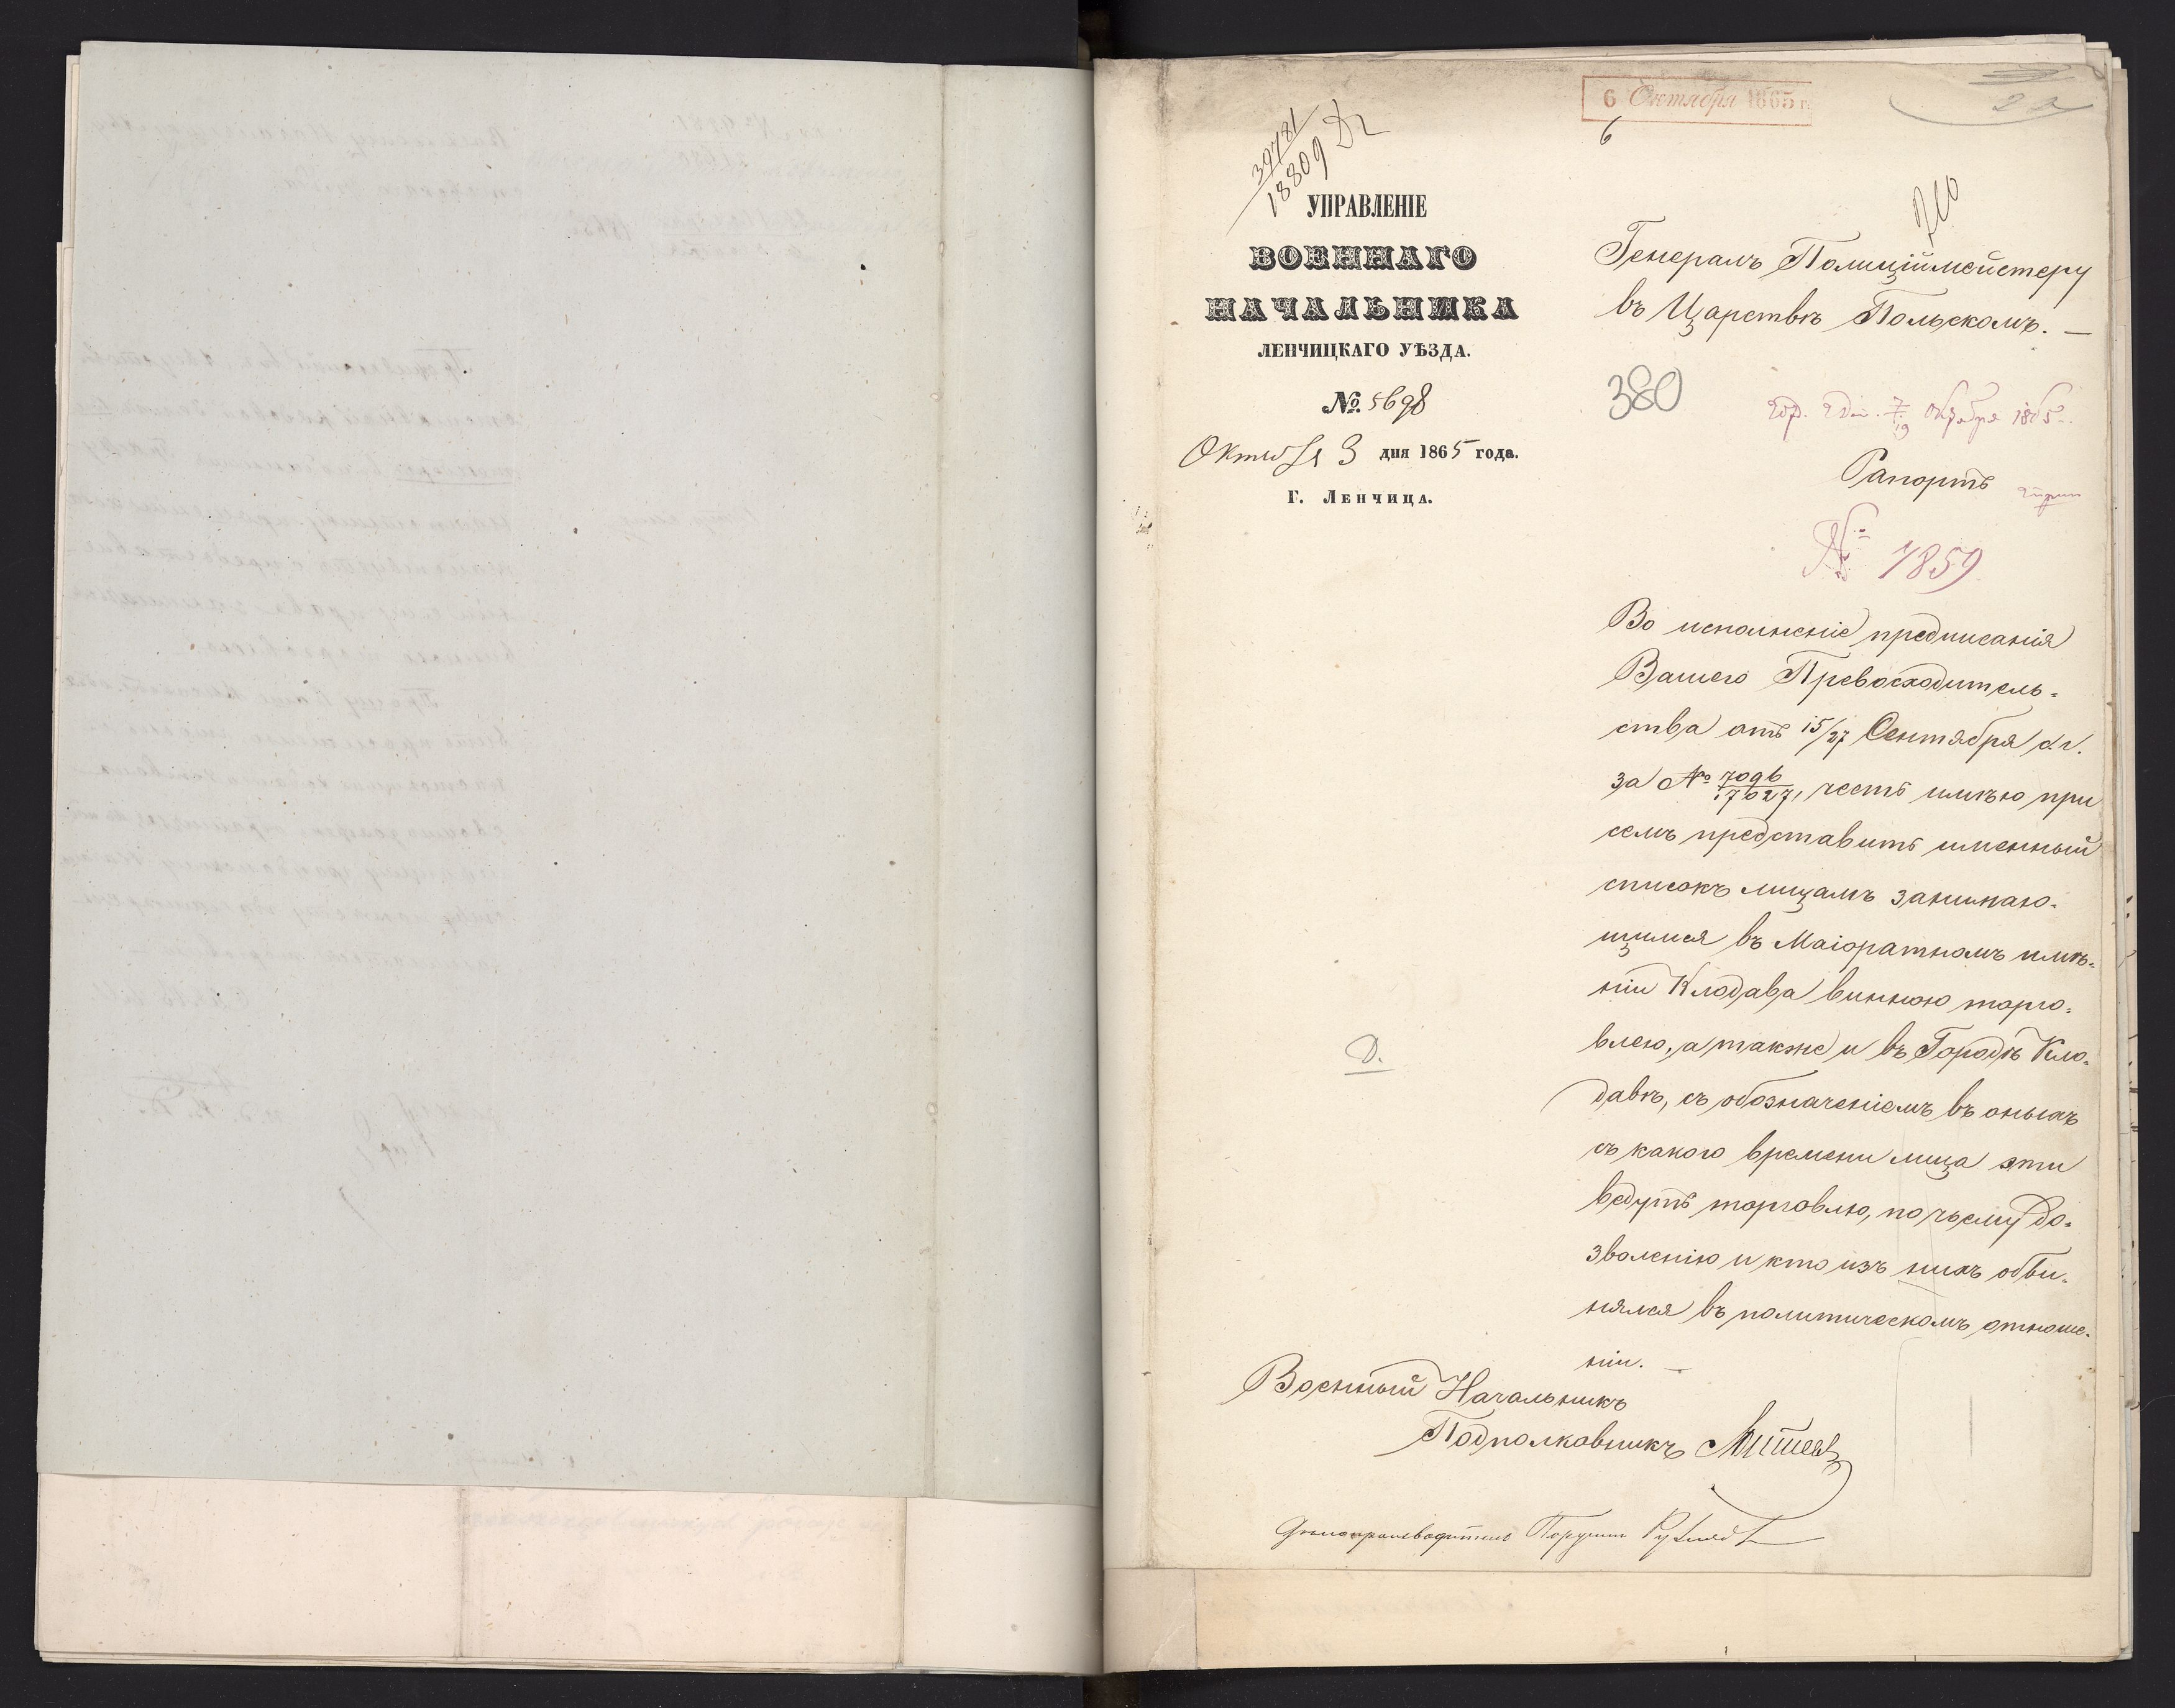 6 Октября 1865 г.
6
22
39781
18809
УПРАВЛЕНІЕ
ВОЕННАГО
НАЧАЛЬНИКА
ЛЕНЧИЦКАГО УѢЗДА.
№ 5698
Октября 3 дня 1865 года.
Г. Ленчица.
Генералъ Полиціймейстеру
въ Царствѣ Польскомъ. —
380
7/19 Октября 1865
Рапортъ
№ 7859
Во исполненіе предписанія
Вашего Превосходитель-
ства отъ 15/27 Сентября с. г.
за № 7096/17627, честь имѣю при
семъ представить именный
списокъ лицамъ занимаю-
щимся въ Маіоратномъ имѣ-
ніи Клодава винною торго-
влею, а также и въ Городѣ Кло-
давѣ, съ обозначеніемъ въ оныхъ
съ какого времени лица эти
ведутъ торговлю, по чьему до-
зволенію и кто изъ нихъ обви-
нялся въ политическомъ отноше-
ніи. —
Д.
Военный Начальникъ
Подполковникъ
Дѣлопроизводитель Поручикъ